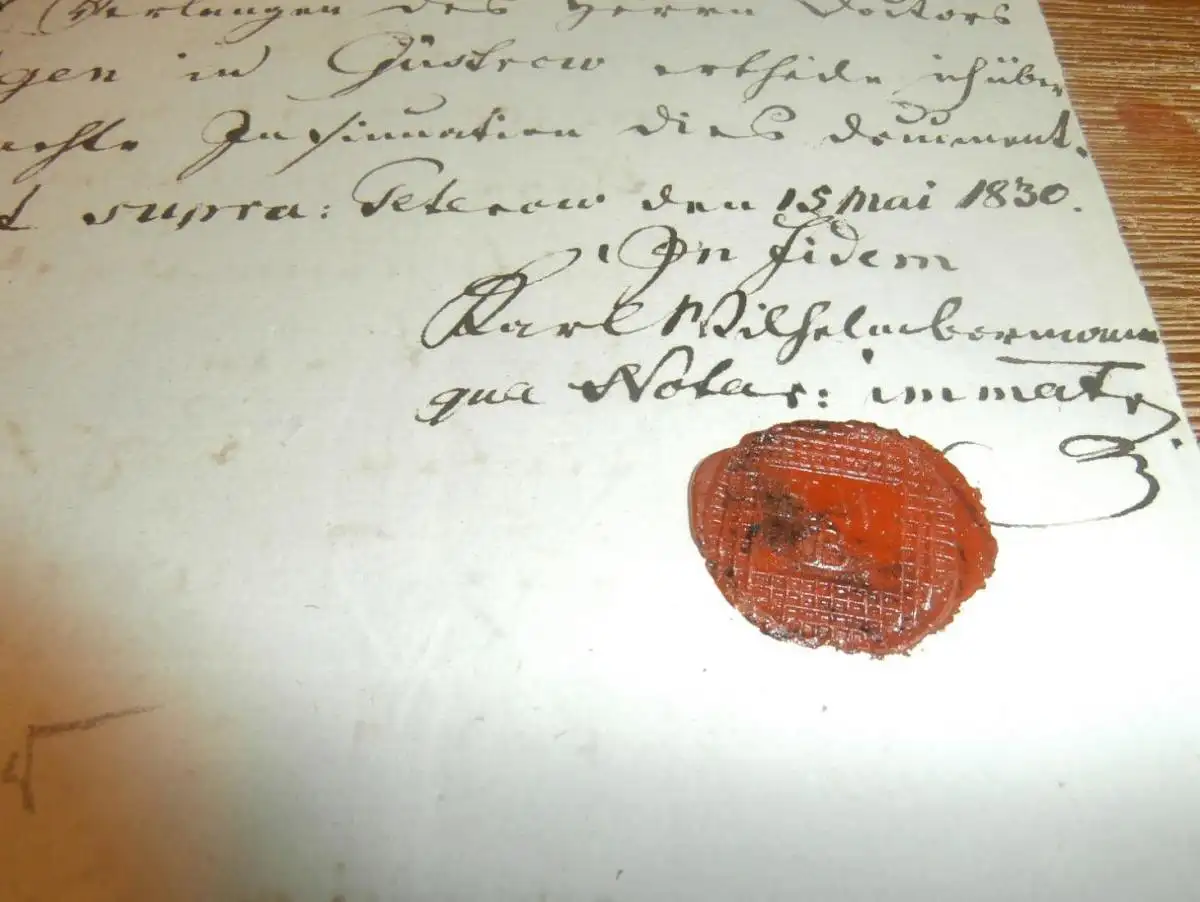 Verlangen des Herrn Doctors
gen in Güstrow ertheile ich über
achte Insinuation dies Document.
t supra: Teterow den 15 Mai 1830.
In fidem
Karl Wilhelm
qua Notar: immatr